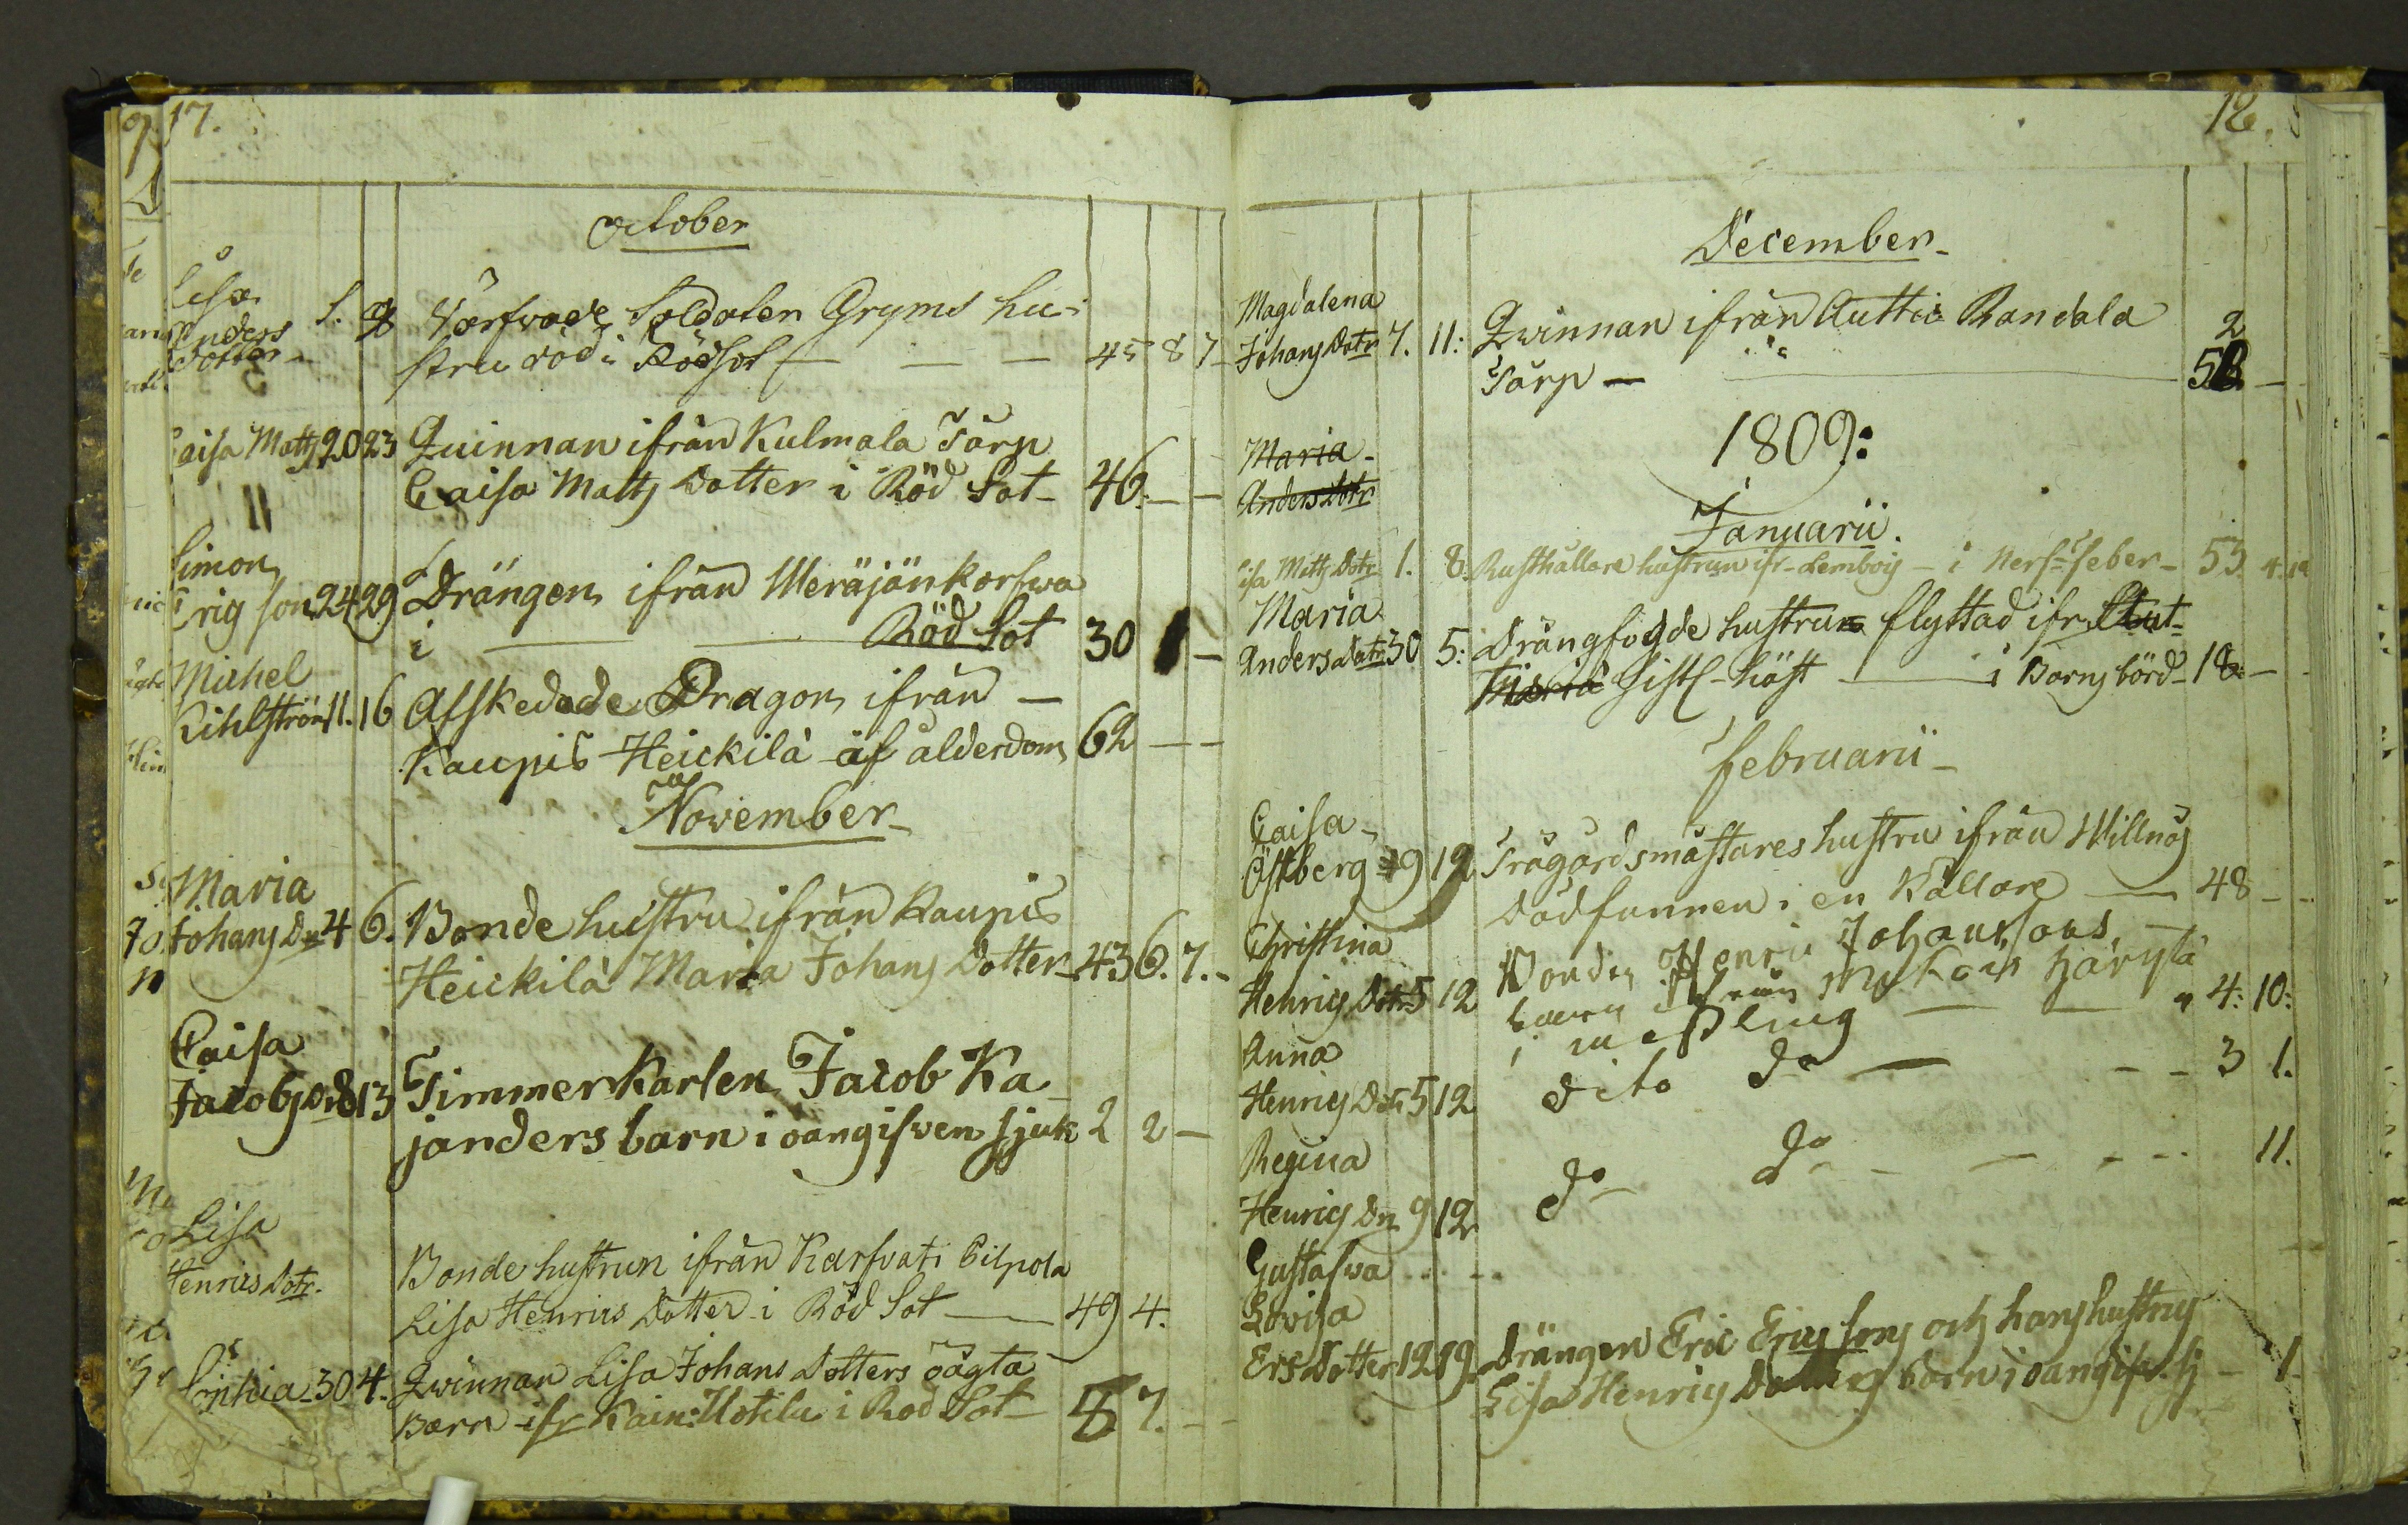 17.
October
Lisa
Anders
Dotter
1. 8 Värfvade Soldaten Gryms hu-
stru död i Rödsot — — — 45 8 7
Caisa Matts 20 23 Quinnan ifrån Kulmala Torp
Caisa Matts Dotter i Röd Sot 46. — —
Simon
Erigson 24 29 Drängen ifrån Meräjänkorfwa
i — Röd Sot 30 1 —
Michel
Kihlström 11. 16 Afskedade Dragon ifrån —
Kaupis Heickilä af ålderdom 62 — —
November
Maria
Johans Dr 4 6. Bonde hustru ifrån Kaupis
Heickilä Maria Johans Dotter 43 6. 7.
Caisa
Jacobs Dr 8 13 Timmerkarlen Jacob Ka-
janders barn i oangifven sjuk 2 2 —
Lisa
Henrics Dotr. Bonde hustrun ifrån Karfvati Pilpola
Lisa Henrics Dotter i Röd Sot — 49 4.
Sophia 30 4. Qwinnan Lisa Johans Dotters oägta
Barn ifr Kain: Uotila i Röd Sot 7. —
18.
December
Magdalena
Johans Dotr 7. 11: Qwinnan ifrån Auttis Randala
Torp — 2
1809:
Maria
Anders Dotr
Januarii.
Lisa Matts Dotr 1. 8. Rusthållare hustrun ifr. Lembois — i Nerf-feber — 53. 4.
Maria
Anders Dotr 30 5: Drängfogde hustrun flyttad ifr
sistl. höst — i Barnsbörd 18 —
Februarii
Caisa
Östberg 9 12 Trägårdsmästares hustru ifrån Willnäs
död funnen i en Källare — 48 —
Christina
Henrics Dotr 5 12 Bonden Henric Johanssons
barn ifrån
i messling — — " 4: 10:
Anna
Henrics Dotr 5 12 dito do — — — 3 1.
Regina
Henrics Dr 9 12 do do — — — 11.
Gustafwa
Lovisa
Ers Dotter 12 19. Drängen Eric Ericssons och hans hustrus
Lisa Henrics Dotters barn i oangifv. sj — 1.